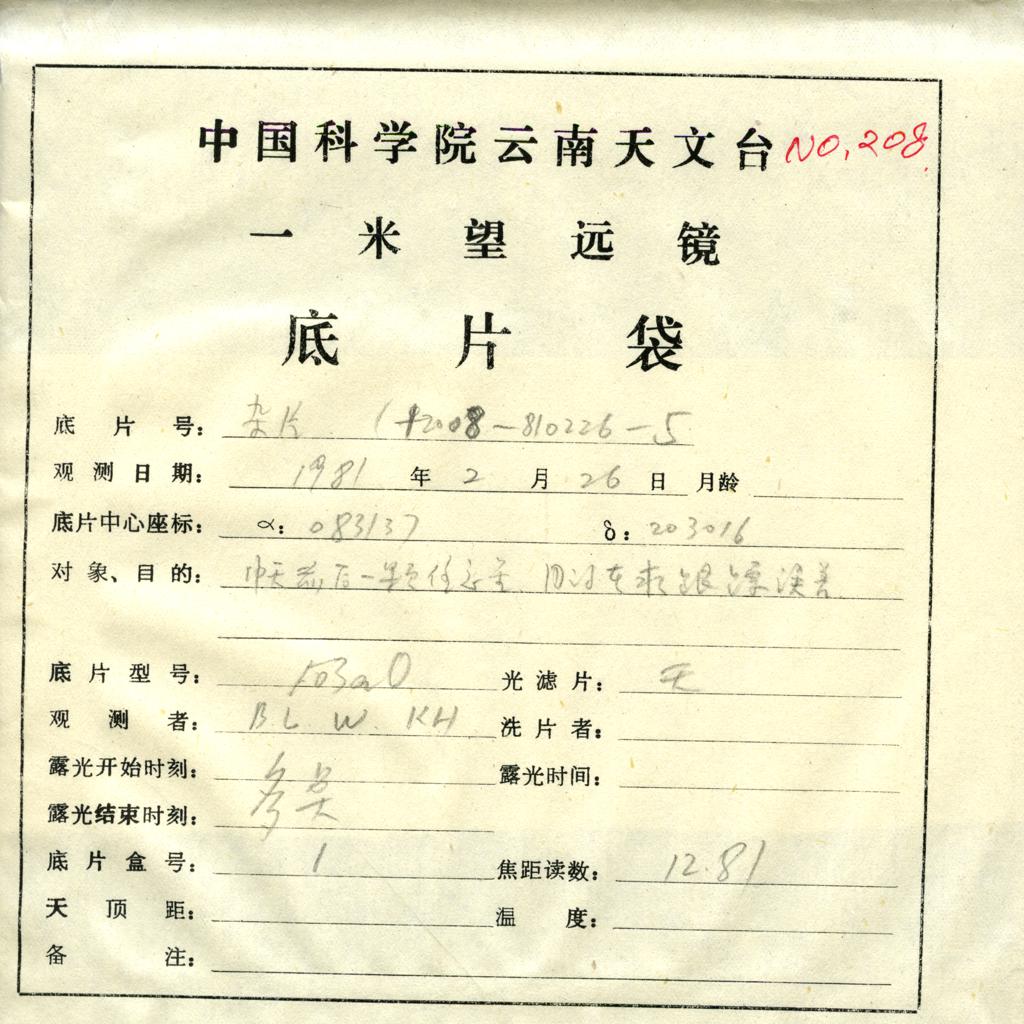 中国科学院云南天文台 NO,208
一米望远镜
底片袋
底片号: 杂片 (+2008-810226-5
观测日期: 1981年2月26日 月龄
底片中心座标: α: 083137 δ: 203016
对象、目的: 一颗任意星 跟踪误差
底片型号: 103aO 光滤片: 无
观测者: BL W. KH 洗片者:
露光开始时刻: 多 露光时间:
露光结束时刻:
底片盒号: 1 焦距读数: 12.81
天顶距: 温度:
备注: